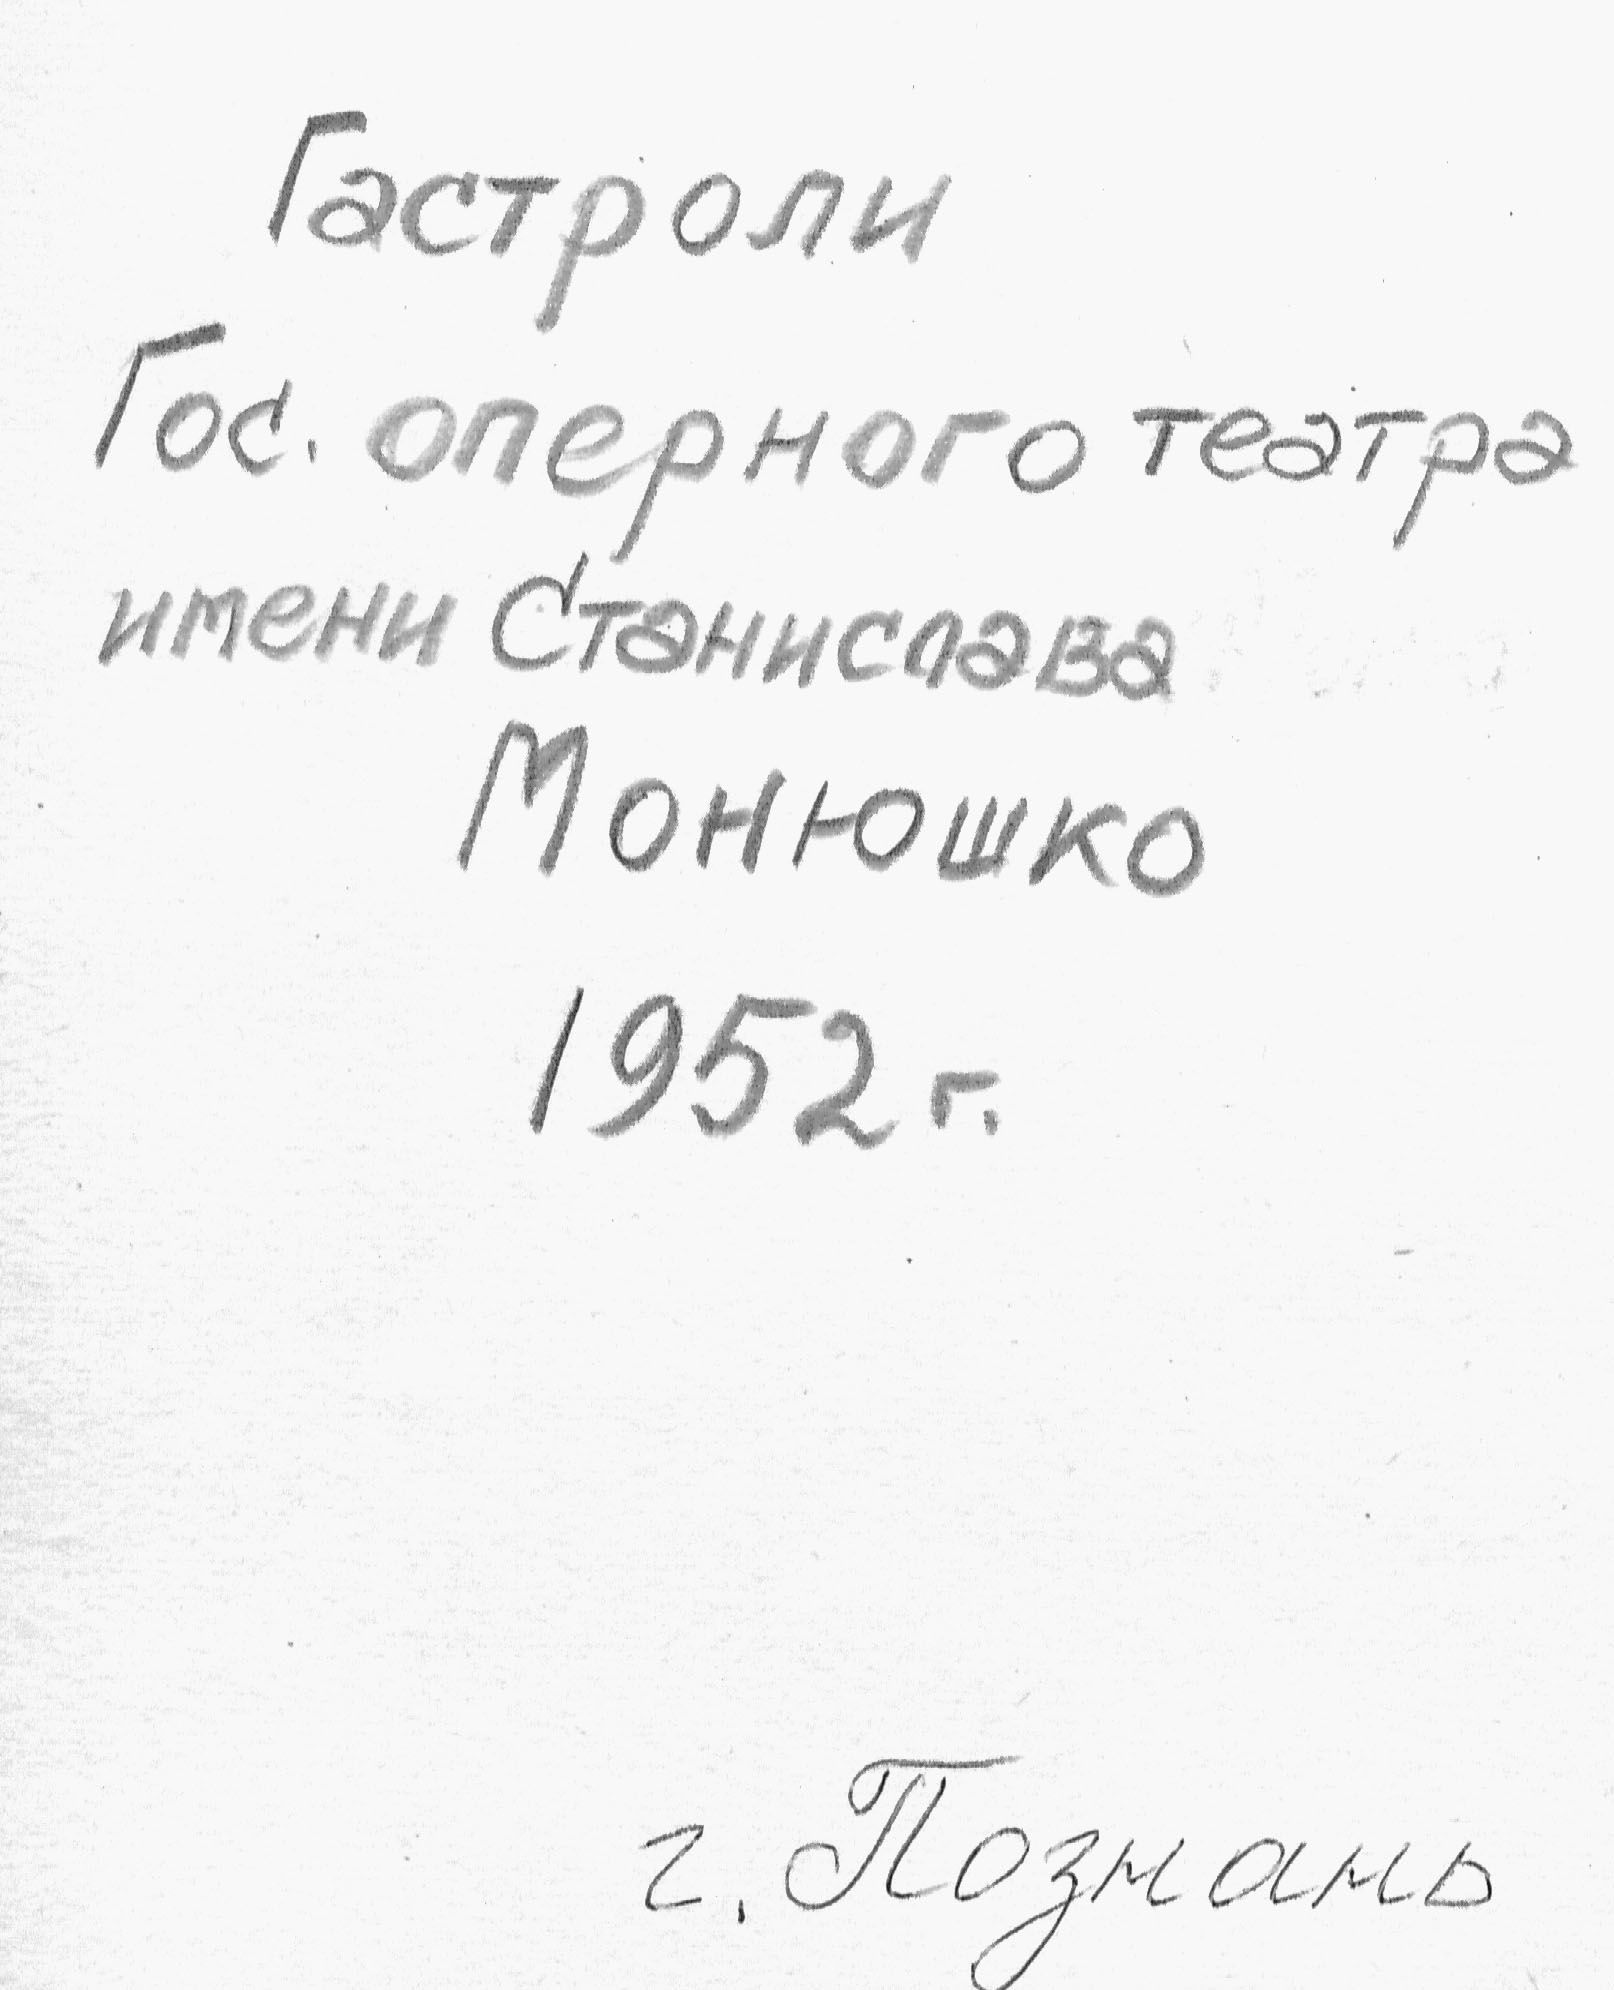 Гастроли
Гос. оперного театра
имени Станислава
Монюшко
1952 г.
г. Познань